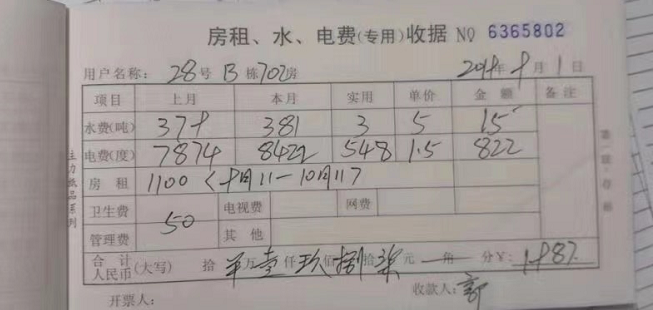 房租、水、电费(专用)收据 № 6365802
用户名称: 28号 B 栋702房 年 9 月 1 日
项目 上月 本月 实用 单价 金额 备注
水费(吨) 378 381 3 5 15
电费(度) 7874 8422 548 1.5 822
房租 1100 <9月11-10月11>
卫生费 电视费 网费
50
管理费 其他
合计人民币(大写) 拾 万壹仟玖佰捌拾柒元 角 分¥: 1987
开票人: 收款人:
主力纸品系列